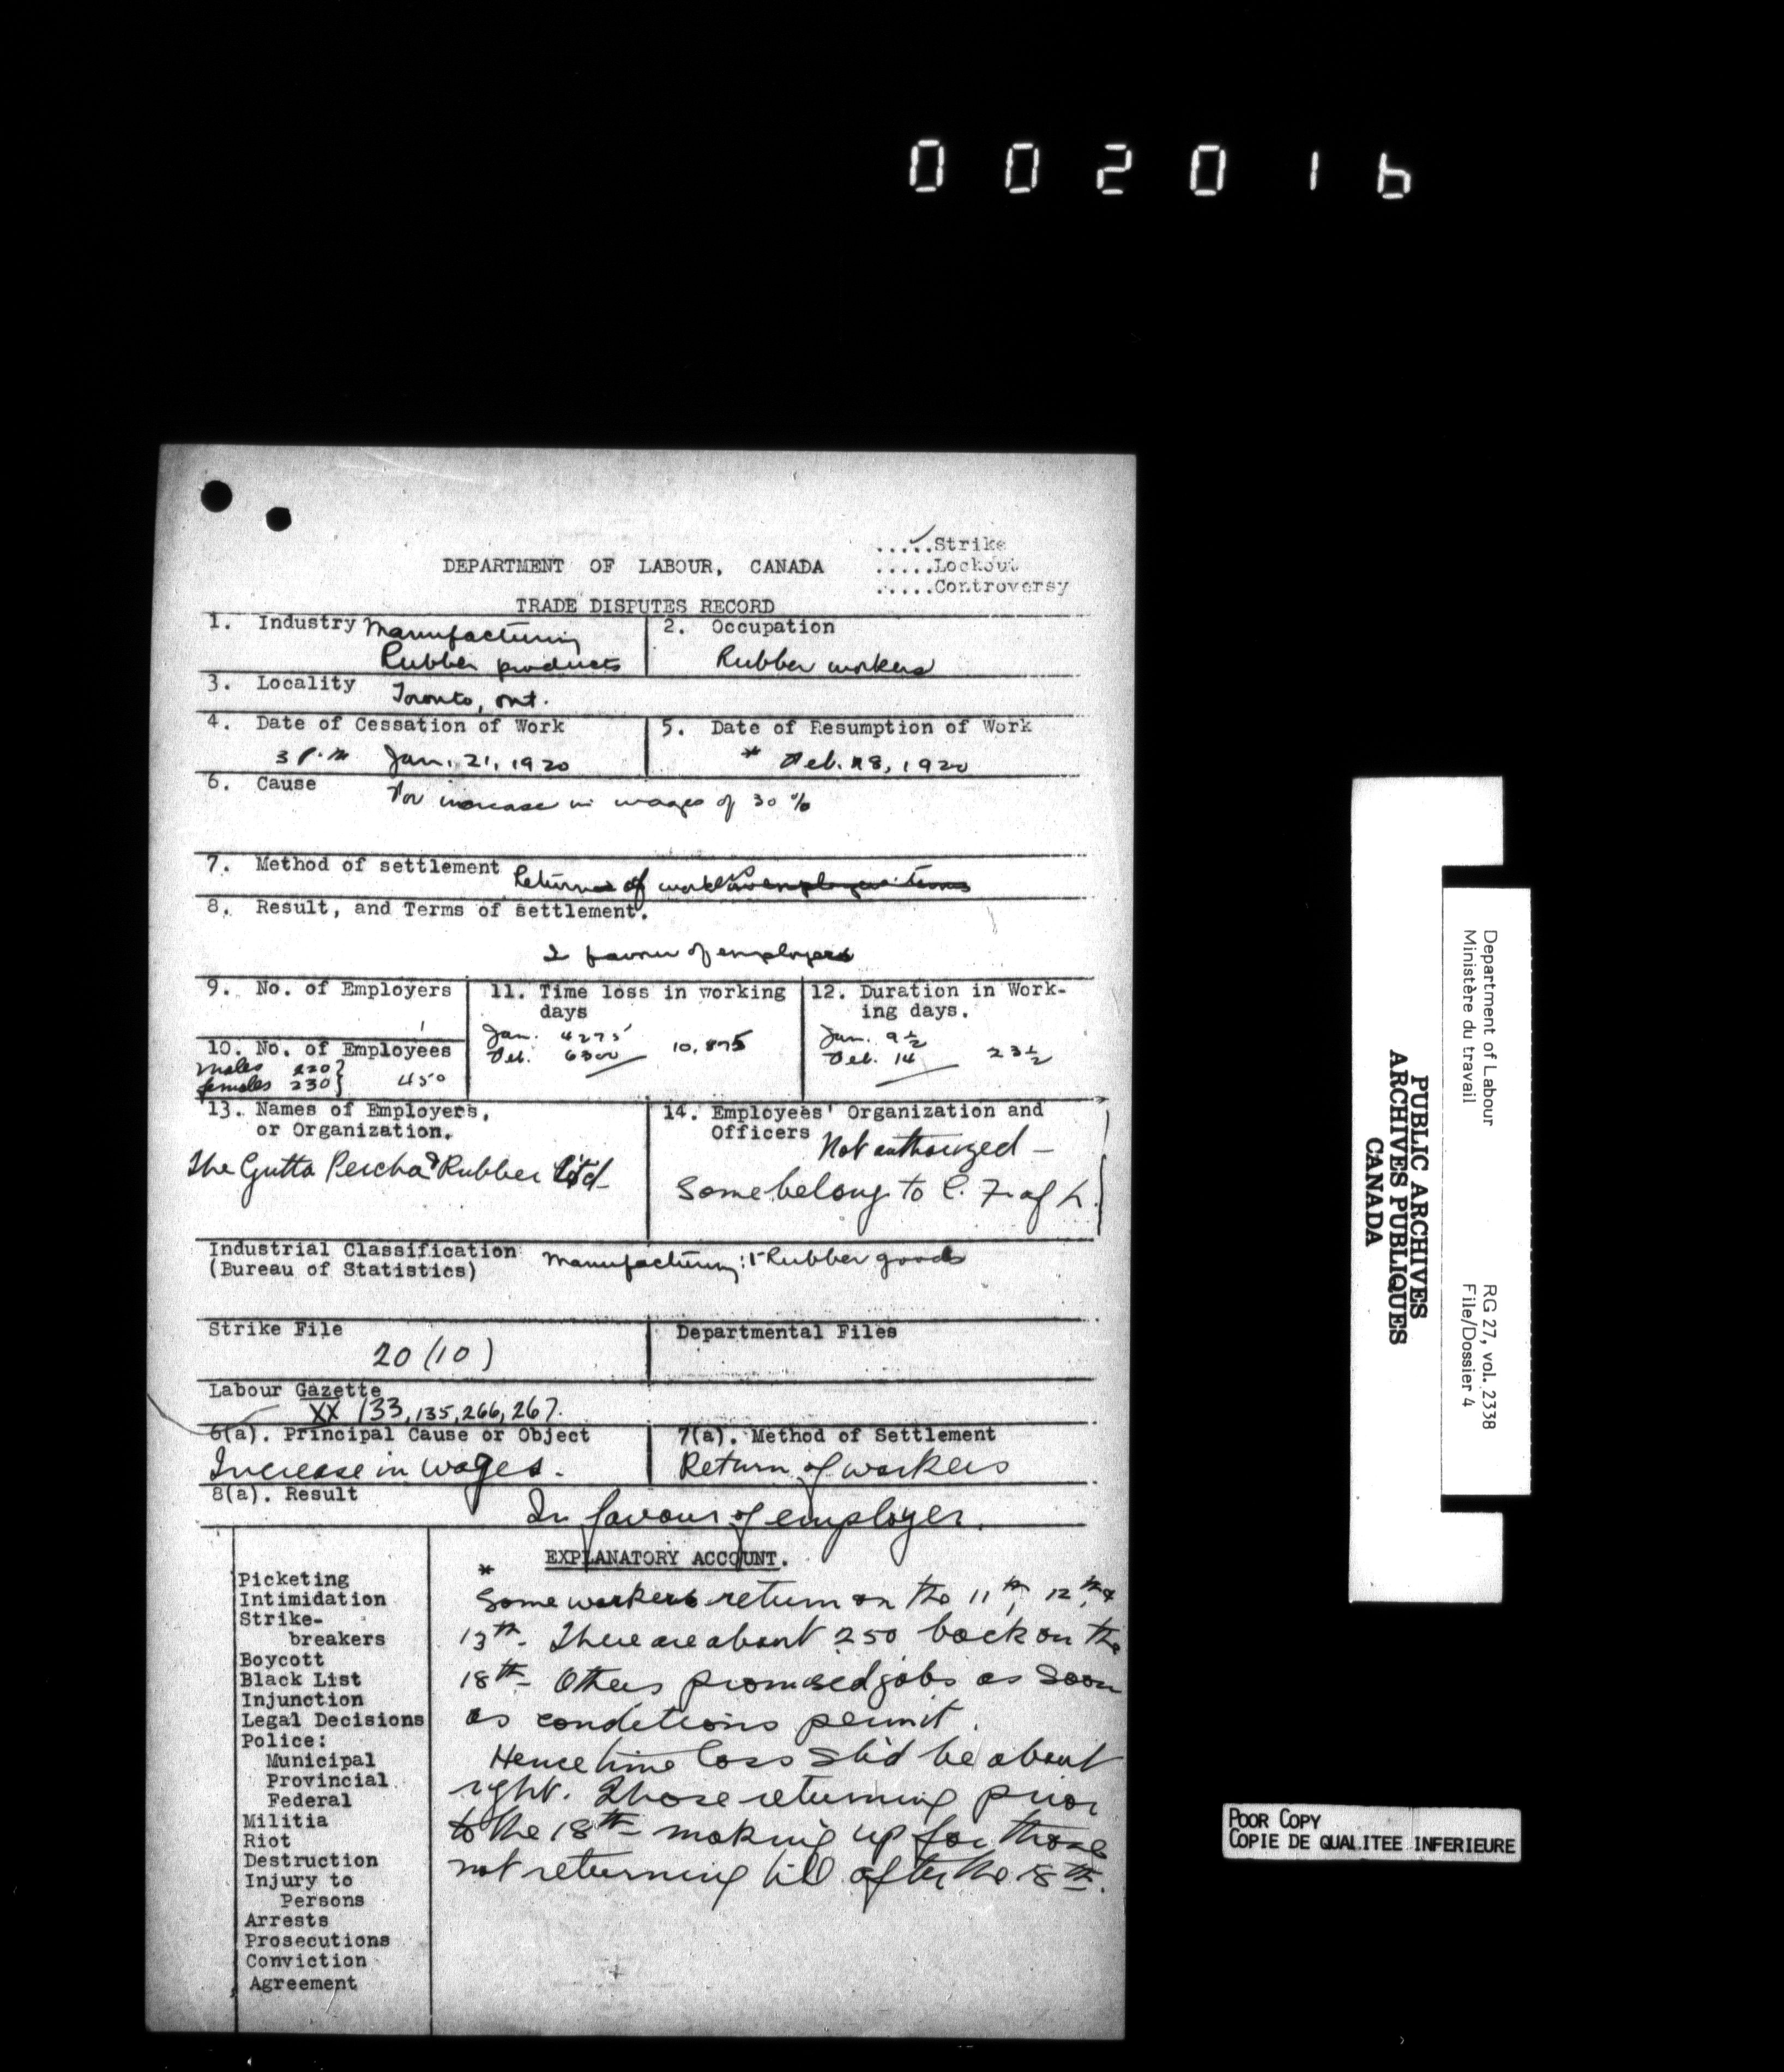 002016
.....Strike
DEPARTMENT OF LABOUR, CANADA
.....Lockout
.....Controversy
TRADE DISPUTES RECORD
1. Industry Manufacturing
Rubber products
2. Occupation
Rubber workers
3. Locality Toronto, Ont.
4. Date of Cessation of Work
3 P.M Jan. 21, 1920
5. Date of Resumption of Work
* Feb. 18, 1920
6. Cause For increase in wages of 30%
7. Method of settlement Return of workers
8. Result, and Terms of settlement.
In favour of employer
9. No. of Employers
1
10. No. of Employees
males 220}
females 230} 450
11. Time loss in working
days
Jan. 4275
Feb. 6300 10,575
12. Duration in Work-
ing days.
Jan. 9½
Feb. 14 23½
13. Names of Employers,
or Organization.
The Gutta Percha & Rubber Ltd
14. Employees' Organization and
Officers Not authorized –
Some belong to C. F. of L.
Industrial Classification
(Bureau of Statistics) Manufacturing: Rubber goods
Strike File
20 (10)
Departmental Files
Labour Gazette
XX 133, 135, 266, 267.
6(a). Principal Cause or Object
Increase in wages.
7(a). Method of Settlement
Return of workers
8(a). Result
In favour of employer.
EXPLANATORY ACCOUNT.
Picketing
Intimidation
Strike-
breakers
Boycott
Black List
Injunction
Legal Decisions
Police:
Municipal
Provincial
Federal
Militia
Riot
Destruction
Injury to
Persons
Arrests
Prosecutions
Conviction
Agreement
*
Some workers return on the 11th, 12th &
13th. There are about 250 back on the
18th. Others promised jobs as soon
as conditions permit.
Hence time loss sh'd be about
right. Those returning prior
to the 18th making up for those
not returning till after the 18th.
Department of Labour
Ministère du travail
RG 27, vol. 2338
File/Dossier 4
PUBLIC ARCHIVES
ARCHIVES PUBLIQUES
CANADA
POOR COPY
COPIE DE QUALITEE INFERIEURE